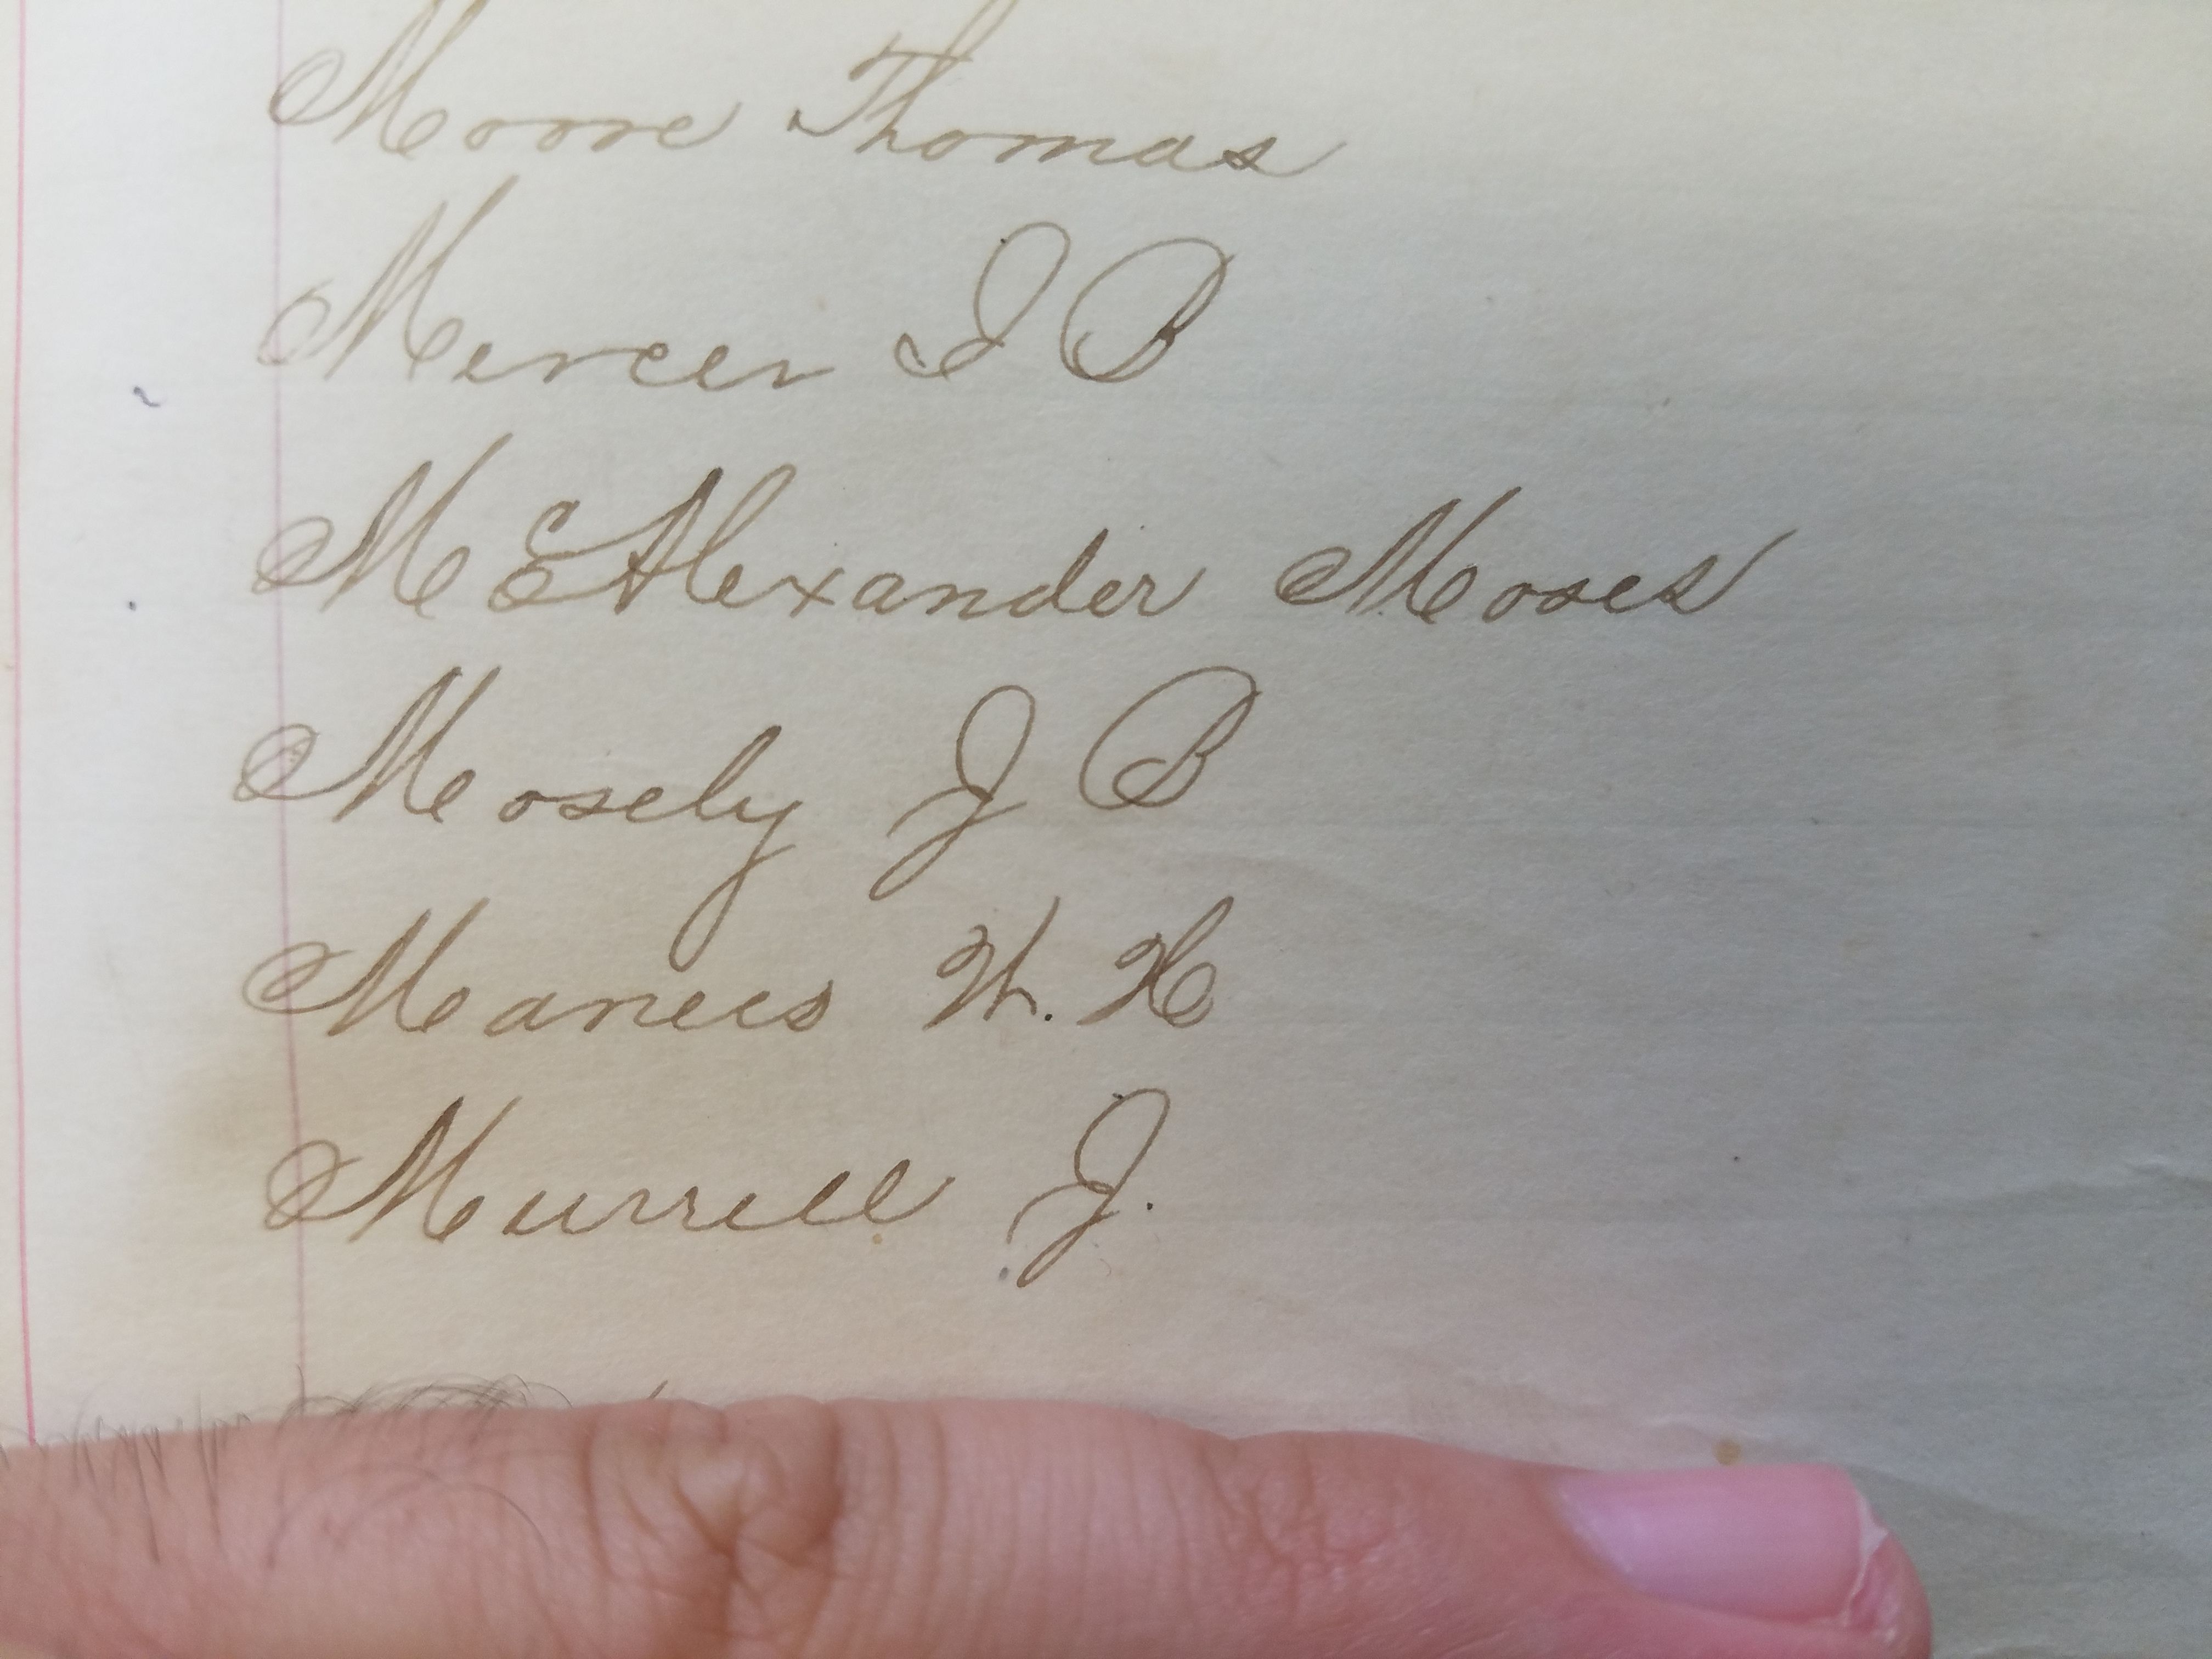 Moore Thomas
Mercer I B
McAlexander Moses
Mosely J B
Manees W. H
Murrell J.